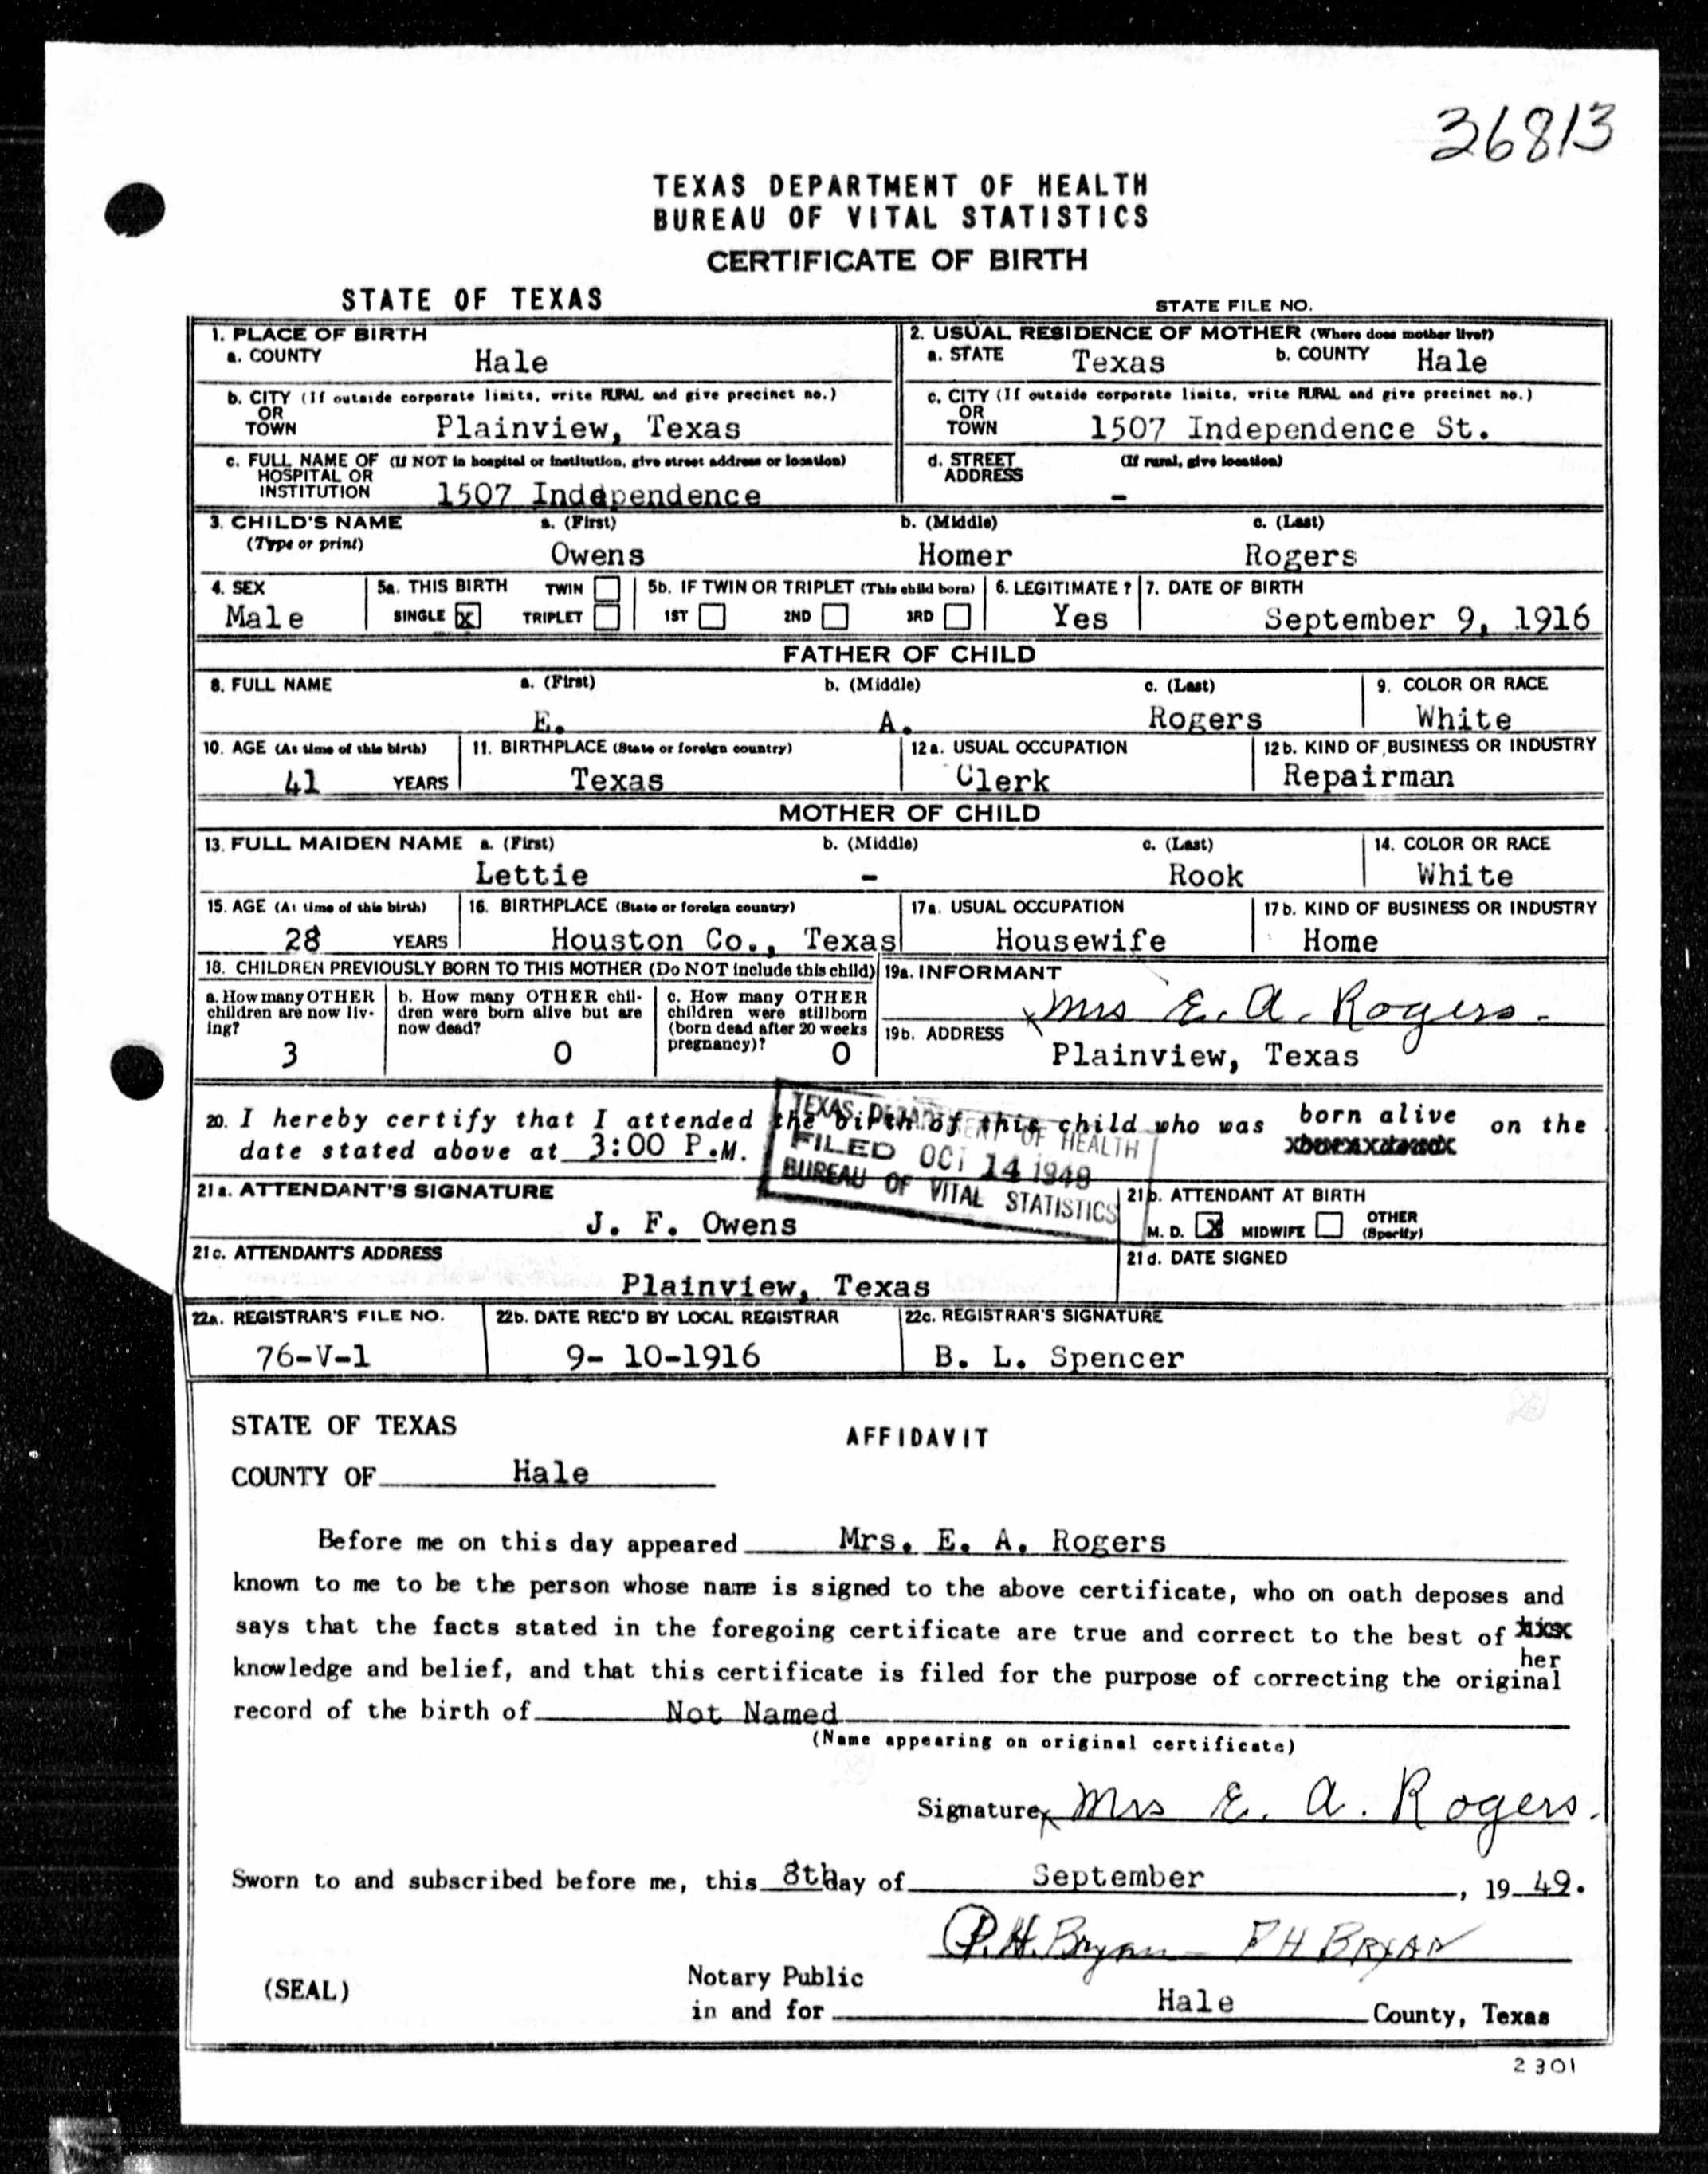 36813
TEXAS DEPARTMENT OF HEALTH
BUREAU OF VITAL STATISTICS
CERTIFICATE OF BIRTH
STATE OF TEXAS
STATE FILE NO.
1. PLACE OF BIRTH
a. COUNTY Hale
2. USUAL RESIDENCE OF MOTHER (Where does mother live?)
a. STATE Texas b. COUNTY Hale
b. CITY (If outside corporate limits, write RURAL and give precinct no.)
OR
TOWN Plainview, Texas
c. CITY (If outside corporate limits, write RURAL and give precinct no.)
OR
TOWN 1507 Independence St.
c. FULL NAME OF (If NOT in hospital or institution, give street address or location)
HOSPITAL OR
INSTITUTION 1507 Independence
d. STREET (If rural, give location)
ADDRESS -
3. CHILD'S NAME a. (First) b. (Middle) c. (Last)
(Type or print)
Owens Homer Rogers
4. SEX
Male
5a. THIS BIRTH TWIN
SINGLE x TRIPLET
5b. IF TWIN OR TRIPLET (This child born)
1ST 2ND 3RD
6. LEGITIMATE ?
Yes
7. DATE OF BIRTH
September 9, 1916
FATHER OF CHILD
8. FULL NAME a. (First) b. (Middle) c. (Last)
E. A. Rogers
9. COLOR OR RACE
White
10. AGE (At time of this birth)
41 YEARS
11. BIRTHPLACE (State or foreign country)
Texas
12a. USUAL OCCUPATION
Clerk
12b. KIND OF BUSINESS OR INDUSTRY
Repairman
MOTHER OF CHILD
13. FULL MAIDEN NAME a. (First) b. (Middle) c. (Last)
Lettie - Rook
14. COLOR OR RACE
White
15. AGE (At time of this birth)
28 YEARS
16. BIRTHPLACE (State or foreign country)
Houston Co., Texas
17a. USUAL OCCUPATION
Housewife
17b. KIND OF BUSINESS OR INDUSTRY
Home
18. CHILDREN PREVIOUSLY BORN TO THIS MOTHER (Do NOT include this child)
a. How many OTHER
children are now liv-
ing?
3
b. How many OTHER chil-
dren were born alive but are
now dead?
0
c. How many OTHER
children were stillborn
(born dead after 20 weeks
pregnancy)?
0
19a. INFORMANT
x Mrs E. A. Rogers.
19b. ADDRESS
Plainview, Texas
20. I hereby certify that I attended the birth of this child who was born alive on the
date stated above at 3:00 P.M.
TEXAS DEPARTMENT OF HEALTH
FILED OCT 14 1949
BUREAU OF VITAL STATISTICS
21a. ATTENDANT'S SIGNATURE
J. F. Owens
21b. ATTENDANT AT BIRTH
M. D. X MIDWIFE OTHER
(Specify)
21c. ATTENDANT'S ADDRESS
Plainview, Texas
21d. DATE SIGNED
22a. REGISTRAR'S FILE NO.
76-V-1
22b. DATE REC'D BY LOCAL REGISTRAR
9- 10-1916
22c. REGISTRAR'S SIGNATURE
B. L. Spencer
STATE OF TEXAS
AFFIDAVIT
COUNTY OF Hale
Before me on this day appeared Mrs. E. A. Rogers
known to me to be the person whose name is signed to the above certificate, who on oath deposes and
says that the facts stated in the foregoing certificate are true and correct to the best of
her
knowledge and belief, and that this certificate is filed for the purpose of correcting the original
record of the birth of Not Named
(Name appearing on original certificate)
Signature x Mrs E. A. Rogers.
Sworn to and subscribed before me, this 8th day of September, 19 49.
P.H. Bryan - P H BRYAN
(SEAL)
Notary Public
in and for Hale County, Texas
2301